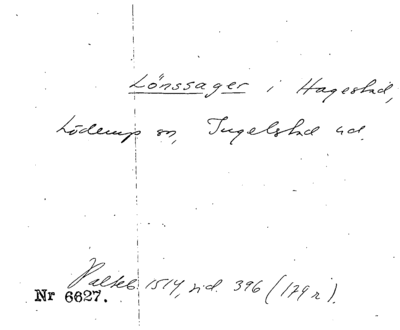 Lönssager i Hagestad,
Löderup sn, Ingelstad hd.
Palteb 1514, sid. 396 (179 r).
Nr 6627.